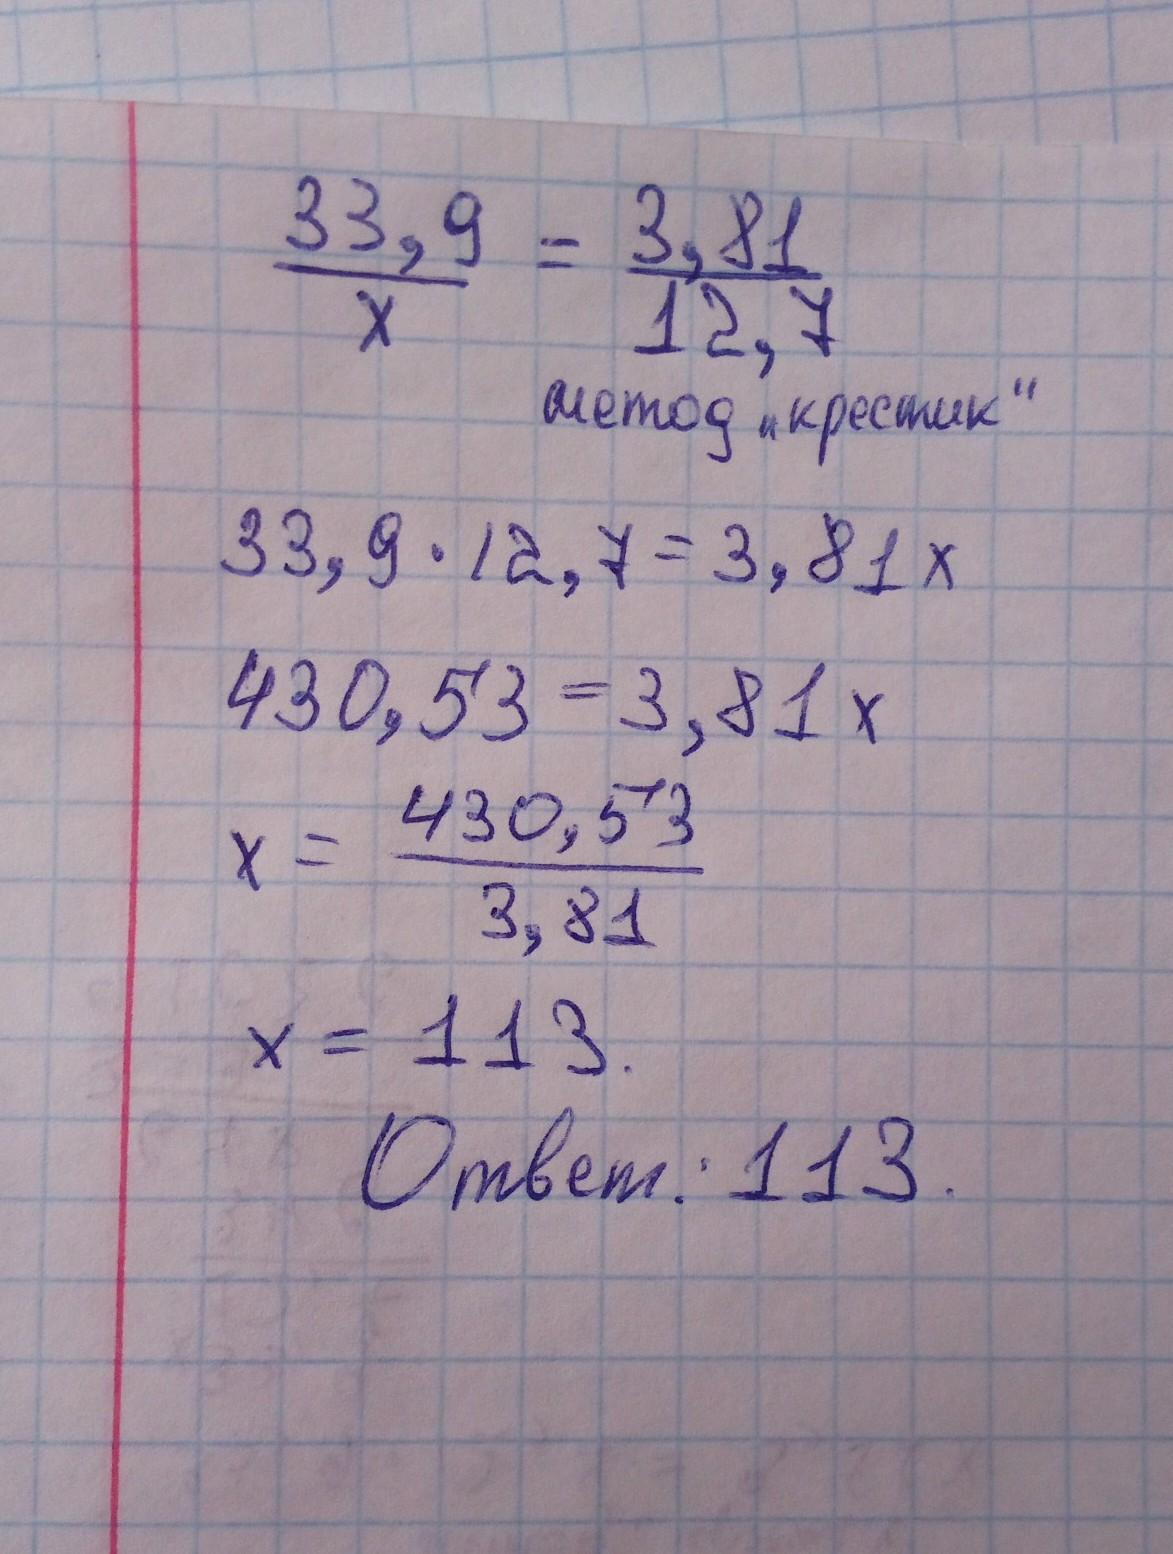 33,9 = 3,81
x 12,7
метод „крестик“
33,9 · 12,7 = 3,81 x
430,53 = 3,81 x
x = 430,53
3,81
x = 113.
Ответ: 113.